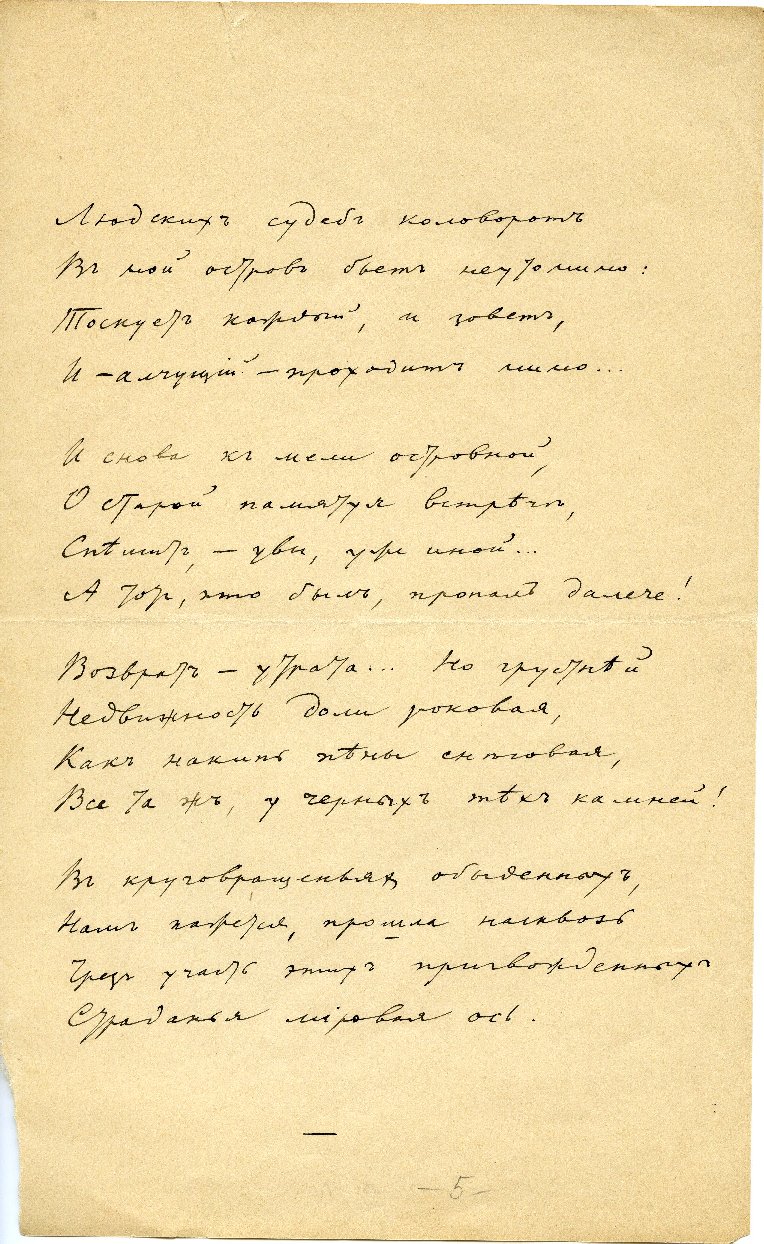 Людскихъ судебъ коловоротъ
Въ мой островъ бьетъ неутомимо:
Тоскуетъ каждый, и зоветъ,
И – алчущій – проходитъ мимо...
И снова къ мели островной,
О старой памятуя встрѣчѣ,
Спѣшитъ, – увы, уже иной...
А тотъ, кто былъ, пропалъ далече!
Возвратъ – утрата... Но грустнѣй
Недвижность доли роковая,
Какъ накипь пѣны снѣговая,
Все та жъ, у черныхъ тѣхъ камней!
Въ круговращеньяхъ обыденныхъ,
Намъ кажется, прошла насквозь
Чрезъ участь этихъ пригвожденныхъ
Страданья міровая ось.
–5–